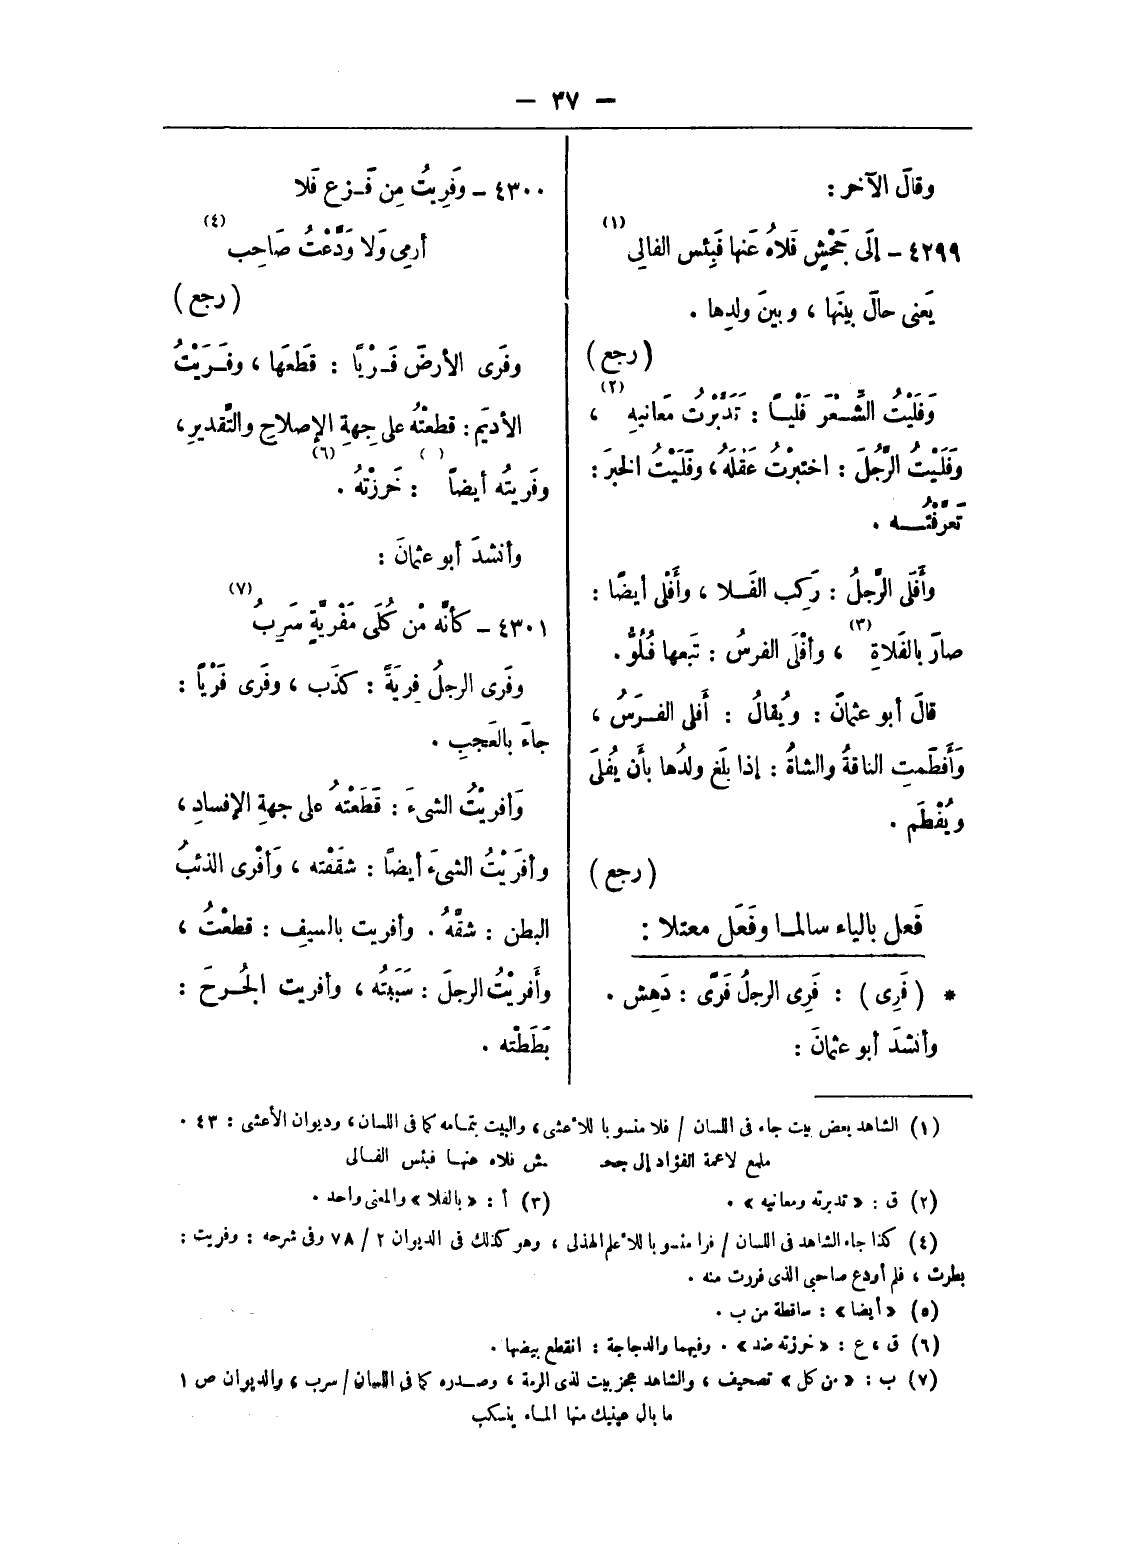 — ٣٧ —
وقالَ الآخر :
٤٢٩٩ – إلَى جَحْشٍ فَلاهُ عَنها فَبِئس الفالِى (١)
يَعنى حالَ بينَها ، وبينَ ولدِها .
( رجع )
وَفَلَيْتُ الشَّعْرَ فَلْياً : تَدَبَّرْتُ مَعانيهِ (٢) ،
وَفَلَيْتُ الرَّجُلَ : اختبرْتُ عَقلَهُ ، وفَلَيْتُ الخبرَ :
تَعَرَّفْتُــه .
وأَفلَى الرَّجلُ : رَكِب الفَـلا ، وأَفْلى أيضًا :
صارَ بالفَلاةِ (٣) ، وأَفْلَى الفرسُ : تَبعها فُلُوٌّ .
قالَ أبو عثمانَ : ويُقالُ : أَفلى الفـرَسُ ،
وَأَفطَمتِ الناقةُ والشاةُ : إذا بلَغ ولدُها بأَن يُفلَى
ويُفْطَم .
( رجع )
فَعل بالياء سالمـا وفَعَل معتلا :
* ( فَرِى ) : فَرِى الرجلُ فَرًى : دَهِش .
وأنشدَ أبو عثمانَ :
٤٣٠٠ – وَفَرِيتُ مِن فَـزع فَلا
أرمِى وَلا وَدَّعْتُ صَاحِب (٤)
( رجع )
وفَرى الأرضَ فَـرْيًا : قَطعَها ، وفَـرَيْتُ
الأديَم : قطعتُه على جِهةِ الإصلاحِ والتَّقديرِ ،
وفَريتُه أيضاً ( ) : خَرزْتهُ (٦) .
وأنشدَ أبو عثمانَ :
٤٣٠١ – كأنَّه مْن كُلَى مَفْرِيَّةٍ سَرِبُ (٧)
وفَرى الرجلُ فِريَةً : كذَب ، وفَرى فَرْياً :
جاءَ بالعَجبِ .
وَأفريْتُ الشىءَ : قَطَعْتهُ على جهةِ الإفسادِ ،
وأَفرَيْتُ الشىءَ أيضًا : شقَقْته ، وَأفْرى الذئبُ
البطن : شقَّهُ . وأفريت بالسيفِ : قطعْتُ ،
وأَفريْتُ الرجلَ : سَبَبتُه ، وأفريت الجُـرحَ :
بَطَطْته .
(١) الشاهد بعض بيت جاء فى اللسان / فلا منسوبا للأعشى ، والبيت بتمـامه كما فى اللسان ، وديوان الأعشى : ٤٣ .
ملمع لاعمة الفؤاد إلى جحـ ـش فلاه عنهـا فبئس الفـالى
(٢) ق : « تدبرته ومعانيه » .
(٣) أ : « بالفلا » والمعنى واحد .
(٤) كذا جاء الشاهد فى اللسان / فرا منسوبا للأعلم الهذلى ، وهو كذلك فى الديوان ٢ / ٧٨ وفى شرحه : وفريت :
بطرت ، فلم أودع صاحبى الذى فررت منه .
(٥) « أيضا » : ساقطة من ب .
(٦) ق ، ع : « خرزته ضد » . وفيهما والدجاجة : انقطع بيضها .
(٧) ب : « من كل » تصحيف ، والشاهد عجز بيت لذى الرمة ، وصـدره كما فى اللسان / سرب ، والديوان ص ١
ما بال عينيك منها المـاء ينسكب